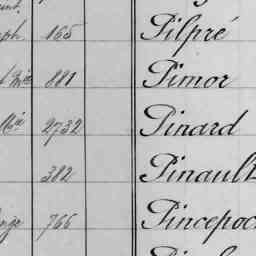 ph 165 Pilpré
881 Pimor
2732 Pinard
382 Pinault
766 Pincepoc